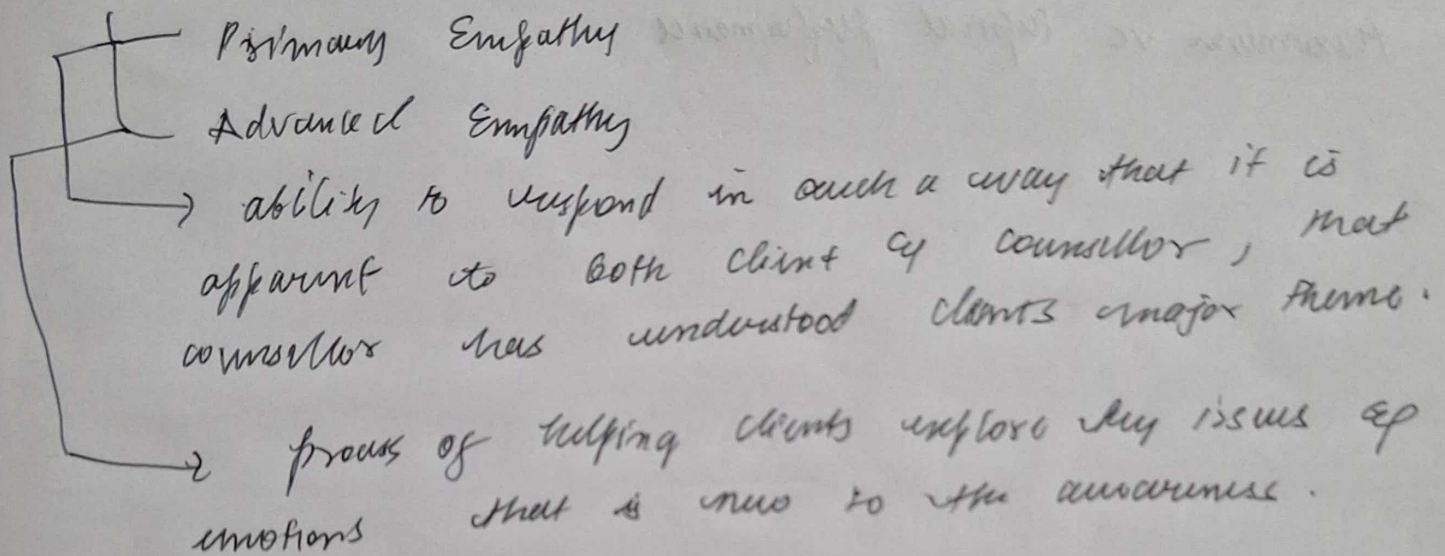 Primary Empathy
Advanced Empathy
ability to respond in such a way that it is
apparent to both client & counsellor, that
counsellor has understood clients major theme.
process of helping clients explore key issues &
emotions that is new to the awareness.